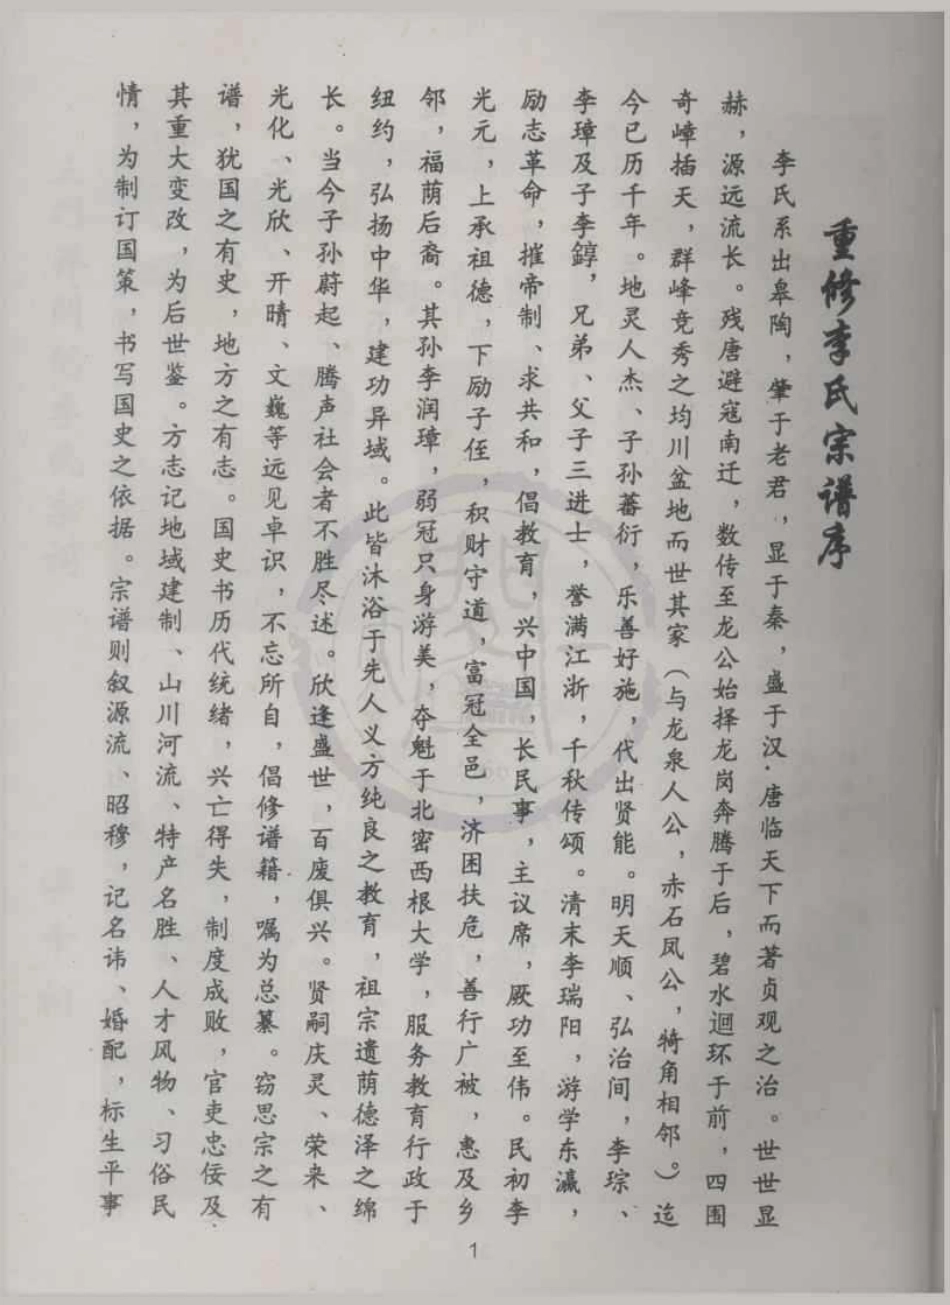 重修李氏宗谱序
李氏系出皋陶，肇于老君，显于秦，盛于汉．唐临天下而著贞观之治。世世显
赫，源远流长。残唐避寇南迁，数传至龙公始择龙岗奔腾于后，碧水迴环于前，四围
奇嶂插天，群峰竞秀之均川盆地而世其家（与龙泉人公，赤石凤公，犄角相邻。）迄
今已历千年。地灵人杰、子孙蕃衍，乐善好施，代出贤能。明天顺、弘治间，李琮、
李璋及子李錞，兄弟、父子三进士，誉满江浙，千秋传颂。清末李瑞阳，游学东瀛，
励志革命，摧帝制、求共和，倡教育，兴中国，长民事，主议席，厥功至伟。民初李
光元，上承祖德，下励子侄，积财守道，富冠全邑，济困扶危，善行广被，惠及乡
邻，福荫后裔。其孙李润璋，弱冠只身游美，夺魁于北密西根大学，服务教育行政于
纽约，弘扬中华，建功异域。此皆沐浴于先人义方纯良之教育，祖宗遗荫德泽之绵
长。当今子孙蔚起、腾声社会者不胜尽述。欣逢盛世，百废俱兴。贤嗣庆灵、荣来、
光化、光欣、开晴、文巍等远见卓识，不忘所自，倡修谱籍，嘱为总纂。窃思宗之有
谱，犹国之有史，地方之有志。国史书历代统绪，兴亡得失，制度成败，官吏忠佞及
其重大变改，为后世鉴。方志记地域建制、山川河流、特产名胜、人才风物、习俗民
情，为制订国策，书写国史之依据。宗谱则叙源流、昭穆，记名讳、婚配，标生平事
1